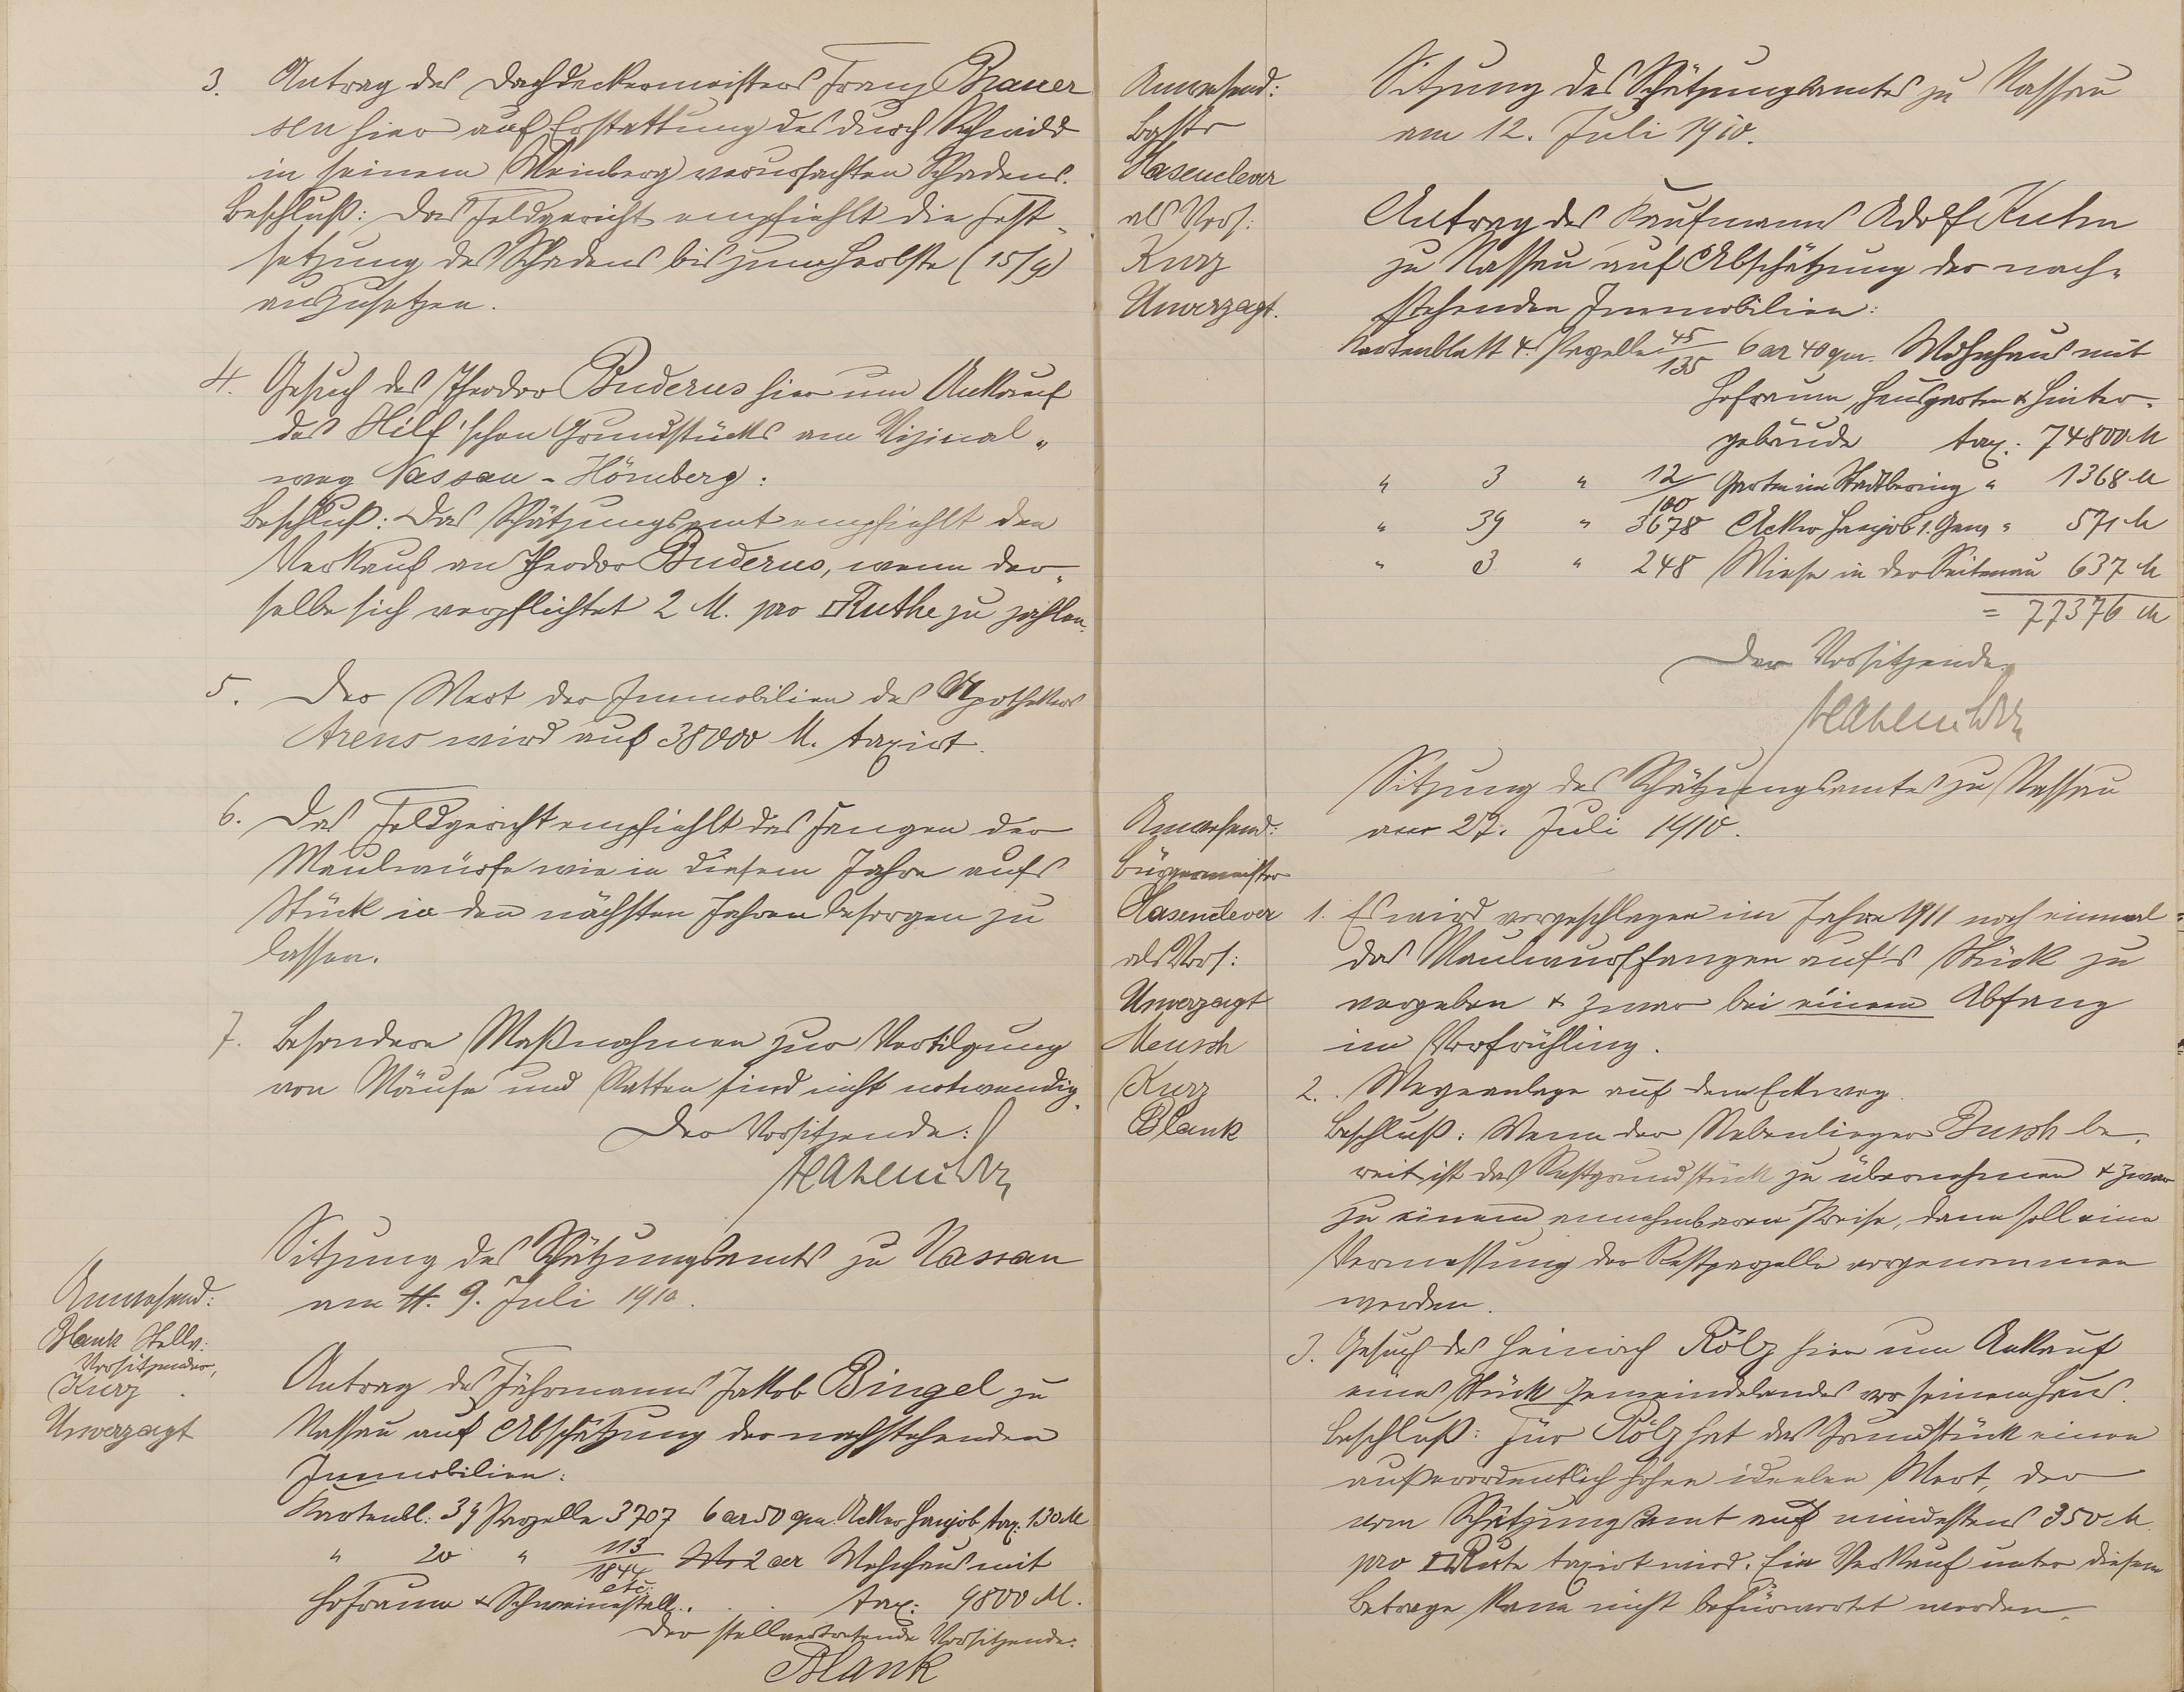 3. Antrag des Dachdeckermeisters Franz Brauer
sen hier auf Erstattung des durch Schmidt
in seinem Weinberg verursachten Schadens.
Beschluß: Das Feldgericht empfiehlt die Fest-
setzung des Schadens bis zum Herbste (15/9)
auszusetzen.
4. Gesuch des Theodor Buderus hier um Ankauf
des Hilf'schen Grundstücks am Vizinal-
weg Nassau - Hömberg:
Beschluß: Das Schätzungsamt empfiehlt den
Verkauf an Theodor Buderus, wenn der-
selbe sich verpflichtet 2 M. pro □Ruthe zu zahlen.
5. Der Wert der Immobilien des Apothekers
Arens wird auf 38000 M. taxirt.
6. Das Feldgericht empfiehlt das Fangen der
Maulwürfe wie in diesem Jahre aufs
Stück in den nächsten Jahren besorgen zu
lassen.
7. Besondere Maßnahmen zur Vertilgung
von Mäuse und Ratten sind nicht notwendig.
Der Vorsitzende:
Sitzung des Schätzungsamts zu Nassau
am 9. Juli 1910.
Anwesend:
Blank Stellv:
Vorsitzender,
Kurz
Unverzagt
Antrag des Fährmanns Jakob Bingel zu
Nassau auf Abschätzung der nachstehenden
Immobilien:
Kartenbl: 39 Parzelle 3707 6 ar 50 qm Acker Hanjob tax: 130 M
" 20 " 113/1844 etc: 2 ar Wohnhaus mit
Hofraum & Schweinestall . . . tax: 9800 M.
Der stellvertretende Vorsitzende:
Blank
Anwesend:
Hasenclever
als Vors:
Kurz
Unverzagt.
Sitzung des Schätzungsamtes zu Nassau
am 12. Juli 1910.
Antrag des Kaufmanns Adolf Kuhn
zu Nassau auf Abschätzung der nach-
stehenden Immobilien:
Kartenblatt 4. Parzelle 45/135 6 ar 40 qm. Wohnhaus mit
Hofraum, Hausgarten & Hinter-
gebäude tax: 74800 M
" 3 " 12/100 Garten im Stadtbering " 1368 M
" 39 " 3678 Acker Hanjob 1. Gew " 571 M
" 3 " 248 Wiese in der Seitenau 637 M
= 77376 M
Der Vorsitzende
Sitzung des Schätzungsamtes zu Nassau
am 27. Juli 1910.
Anwesend:
Bürgermeister
Hasenclever
als Vors:
Unverzagt
Meusch
Kurz
Blank
1. Es wird vorgeschlagen im Jahre 1911 noch einmal
das Maulwurffangen auf's Stück zu
vergeben & zwar bei einem Abfang
im Vorfrühling.
2. Wegeanlage auf dem Eckweg.
Beschluß: Wenn der Nebenlieger Busch be-
reit ist das Restgrundstück zu übernehmen & zwar
zu einem annehmbaren Preise, dann soll eine
Vermessung der Restparzelle vorgenommen
werden.
3. Gesuch des Heinrich Rölz hier um Ankauf
eines Stück Gemeindelandes vor seinem Haus.
Beschluß: Für Rölz hat das Grundstück einen
außerordentlich hohen ideelen Wert, der
vom Schätzungsamt auf mindestens 350 M.
pro □Rute taxirt wird. Ein Verkauf unter diesem
Betrage kann nicht befürwortet werden.